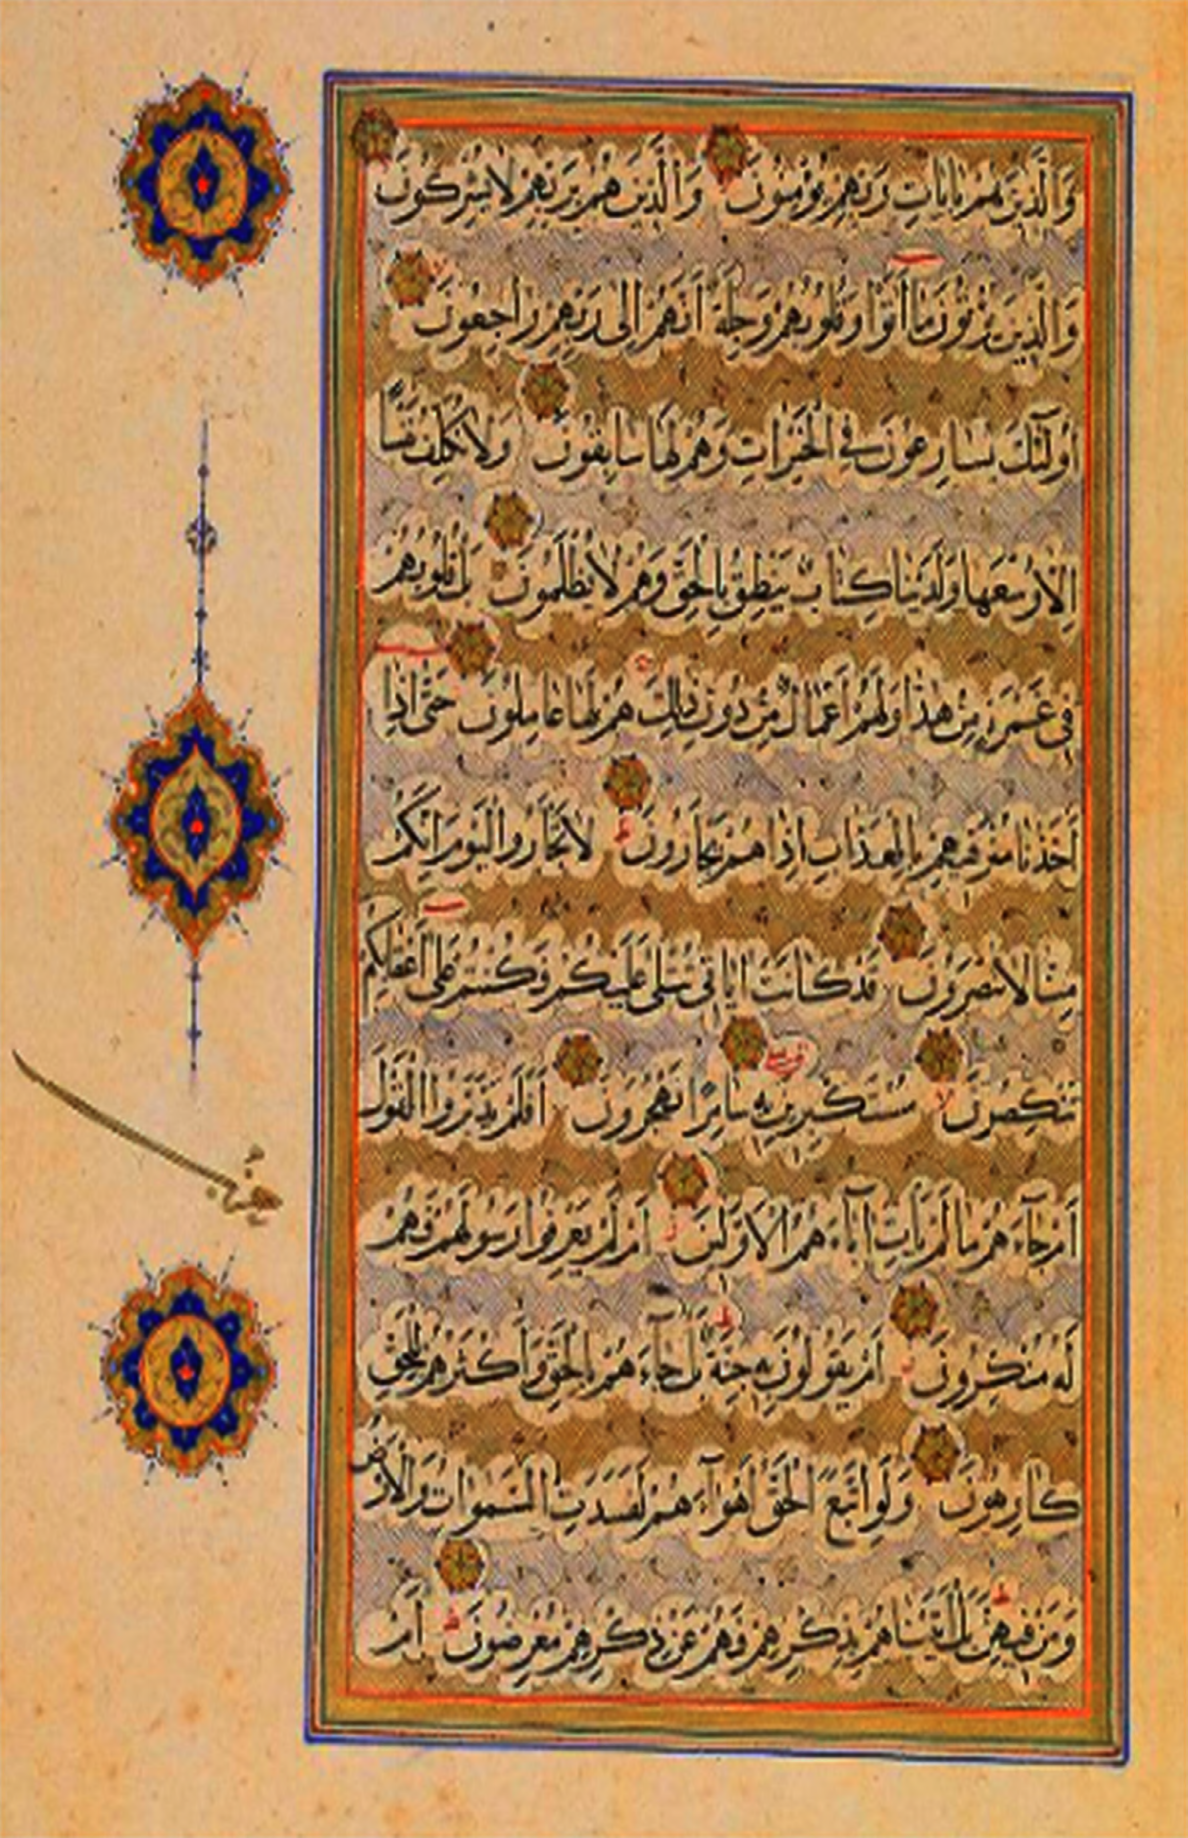 وَالَّذِينَ هُمْ بِاٰيَاتِ رَبِّهِمْ يُؤْمِنُونَ وَالَّذِينَ هُمْ بِرَبِّهِمْ لَا يُشْرِكُونَ
وَالَّذِينَ يُؤْتُونَ مَا اٰتَوْا وَقُلُوبُهُمْ وَجِلَةٌ اَنَّهُمْ اِلٰى رَبِّهِمْ رَاجِعُونَ
اُولٰٓئِكَ يُسَارِعُونَ فِي الْخَيْرَاتِ وَهُمْ لَهَا سَابِقُونَ وَلَا نُكَلِّفُ نَفْسًا
اِلَّا وُسْعَهَا وَلَدَيْنَا كِتَابٌ يَنْطِقُ بِالْحَقِّ وَهُمْ لَا يُظْلَمُونَ بَلْ قُلُوبُهُمْ
فِي غَمْرَةٍ مِنْ هٰذَا وَلَهُمْ اَعْمَالٌ مِنْ دُونِ ذٰلِكَ هُمْ لَهَا عَامِلُونَ حَتّٰى اِذَا
اَخَذْنَا مُتْرَفِيهِمْ بِالْعَذَابِ اِذَا هُمْ يَجْاَرُونَ لَا تَجْاَرُوا الْيَوْمَ اِنَّكُمْ
مِنَّا لَا تُنْصَرُونَ قَدْ كَانَتْ اٰيَاتِي تُتْلٰى عَلَيْكُمْ وَكُنْتُمْ عَلٰى اَعْقَابِكُمْ
تَنْكِصُونَ مُسْتَكْبِرِينَ بِهِ سَامِرًا تَهْجُرُونَ اَفَلَمْ يَدَّبَّرُوا الْقَوْلَ
اَمْ جَآءَهُمْ مَا لَمْ يَاْتِ اٰبَآءَهُمُ الْاَوَّلِينَ اَمْ لَمْ يَعْرِفُوا رَسُولَهُمْ فَهُمْ
لَهُ مُنْكِرُونَ اَمْ يَقُولُونَ بِهِ جِنَّةٌ بَلْ جَآءَهُمْ بِالْحَقِّ وَاَكْثَرُهُمْ لِلْحَقِّ
كَارِهُونَ وَلَوِ اتَّبَعَ الْحَقُّ اَهْوَآءَهُمْ لَفَسَدَتِ السَّمٰوَاتُ وَالْاَرْضُ
وَمَنْ فِيهِنَّ بَلْ اَتَيْنَاهُمْ بِذِكْرِهِمْ فَهُمْ عَنْ ذِكْرِهِمْ مُعْرِضُونَ اَمْ